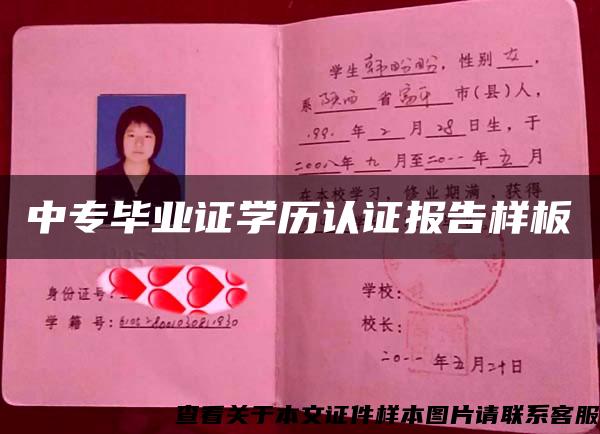 学生韩盼盼，性别女，
系陕西省富平市(县)人，
1991年2月28日生，于
二00八年九月至二0一一年五月
在本校学习，修业期满，获得
中专毕业证学历认证报告样板
身份证号：
学籍号：
学校：
校长：
二0一一年五月二十日
查看关于本文证件样本图片请联系客服